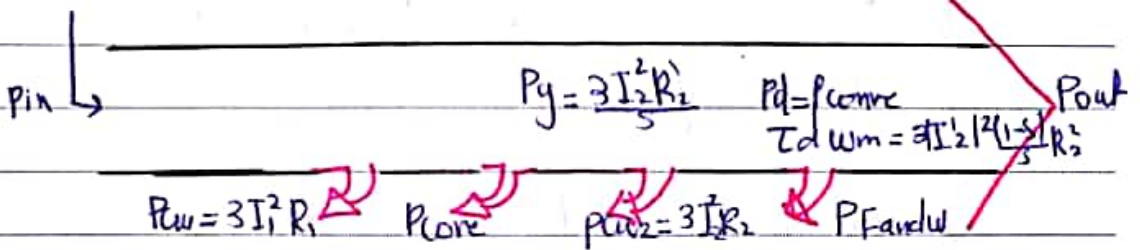 Pin Py = 3I₂²R₂'/s Pd = Pconve Pout
τd ωm = 3|I'₂|²(1-s)/s R₂²
Pcu = 3I₁²R₁ Pcore Pcu2 = 3I₂²R₂ PFandw